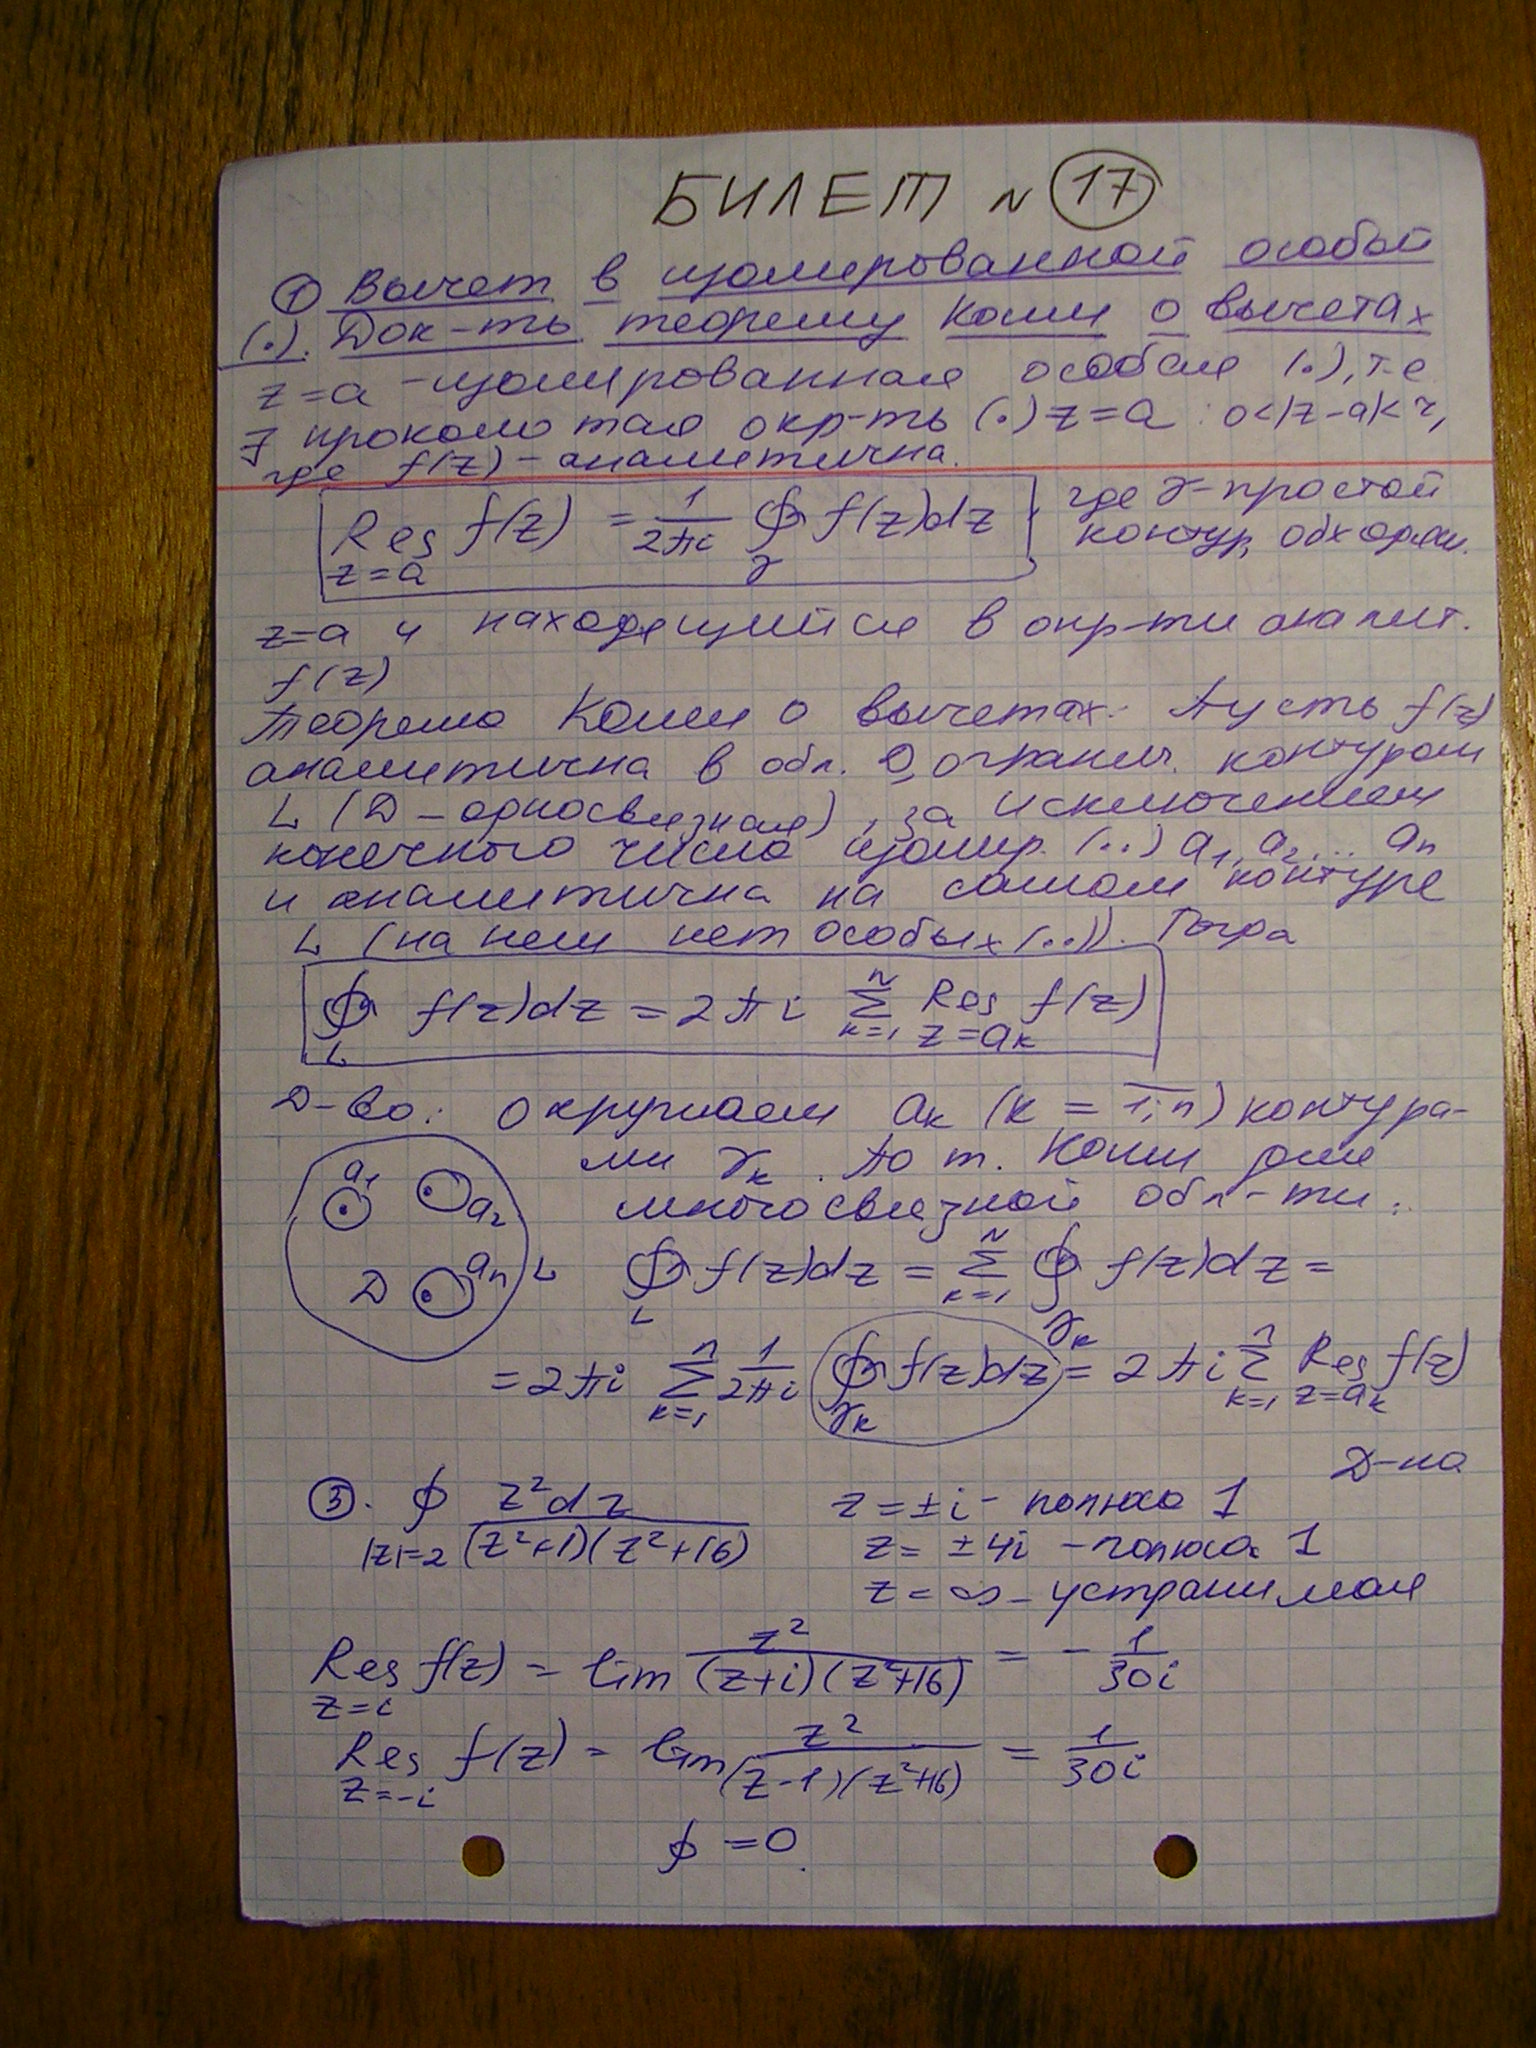 БИЛЕТ N 17
① Вычет в изолированной особой
(.). Док-ть теорему Коши о вычетах
z=a - изолированная особая (.), т.е
∃ проколотая окр-ть (.) z=a : 0<|z-a|<r,
где f(z) - аналитична.
Res f(z) = 1/2πi ∮ f(z)dz где γ - простой
z=a γ контур, обходящ.
z=a и находящийся в окр-ти аналит.
f(z)
Теорема Коши о вычетах: Пусть f(z)
аналитична в обл. D, огранич. контуром
L (D - односвязная), за исключением
конечного числа изолир. (..) a₁, a₂,... aₙ
и аналитична на самом контуре
L (на нем нет особых (..)). Тогда
∮ f(z)dz = 2πi Σ Res f(z)
L k=1 n z=aₖ
Д-во: Окружаем aₖ (k = 1,n) контура-
ми γₖ. По т. Коши для
многосвязной обл-ти:
a₁ a₂ aₙ D L
∮ f(z)dz = Σ ∮ f(z)dz =
L k=1 n γₖ
= 2πi Σ 1/2πi ∮ f(z)dz = 2πi Σ Res f(z)
k=1 n γₖ k=1 n z=aₖ
Д-на
③. ∮ z²dz / (z²+1)(z²+16) z = ±i - полюса 1
|z|=2 z = ±4i - полюса 1
z = ∞ - устранимая
Res f(z) = lim z² / (z+i)(z²+16) = - 1/30i
z=i
Res f(z) = lim z² / (z-1)(z²+16) = 1/30i
z=-i
∮ = 0.